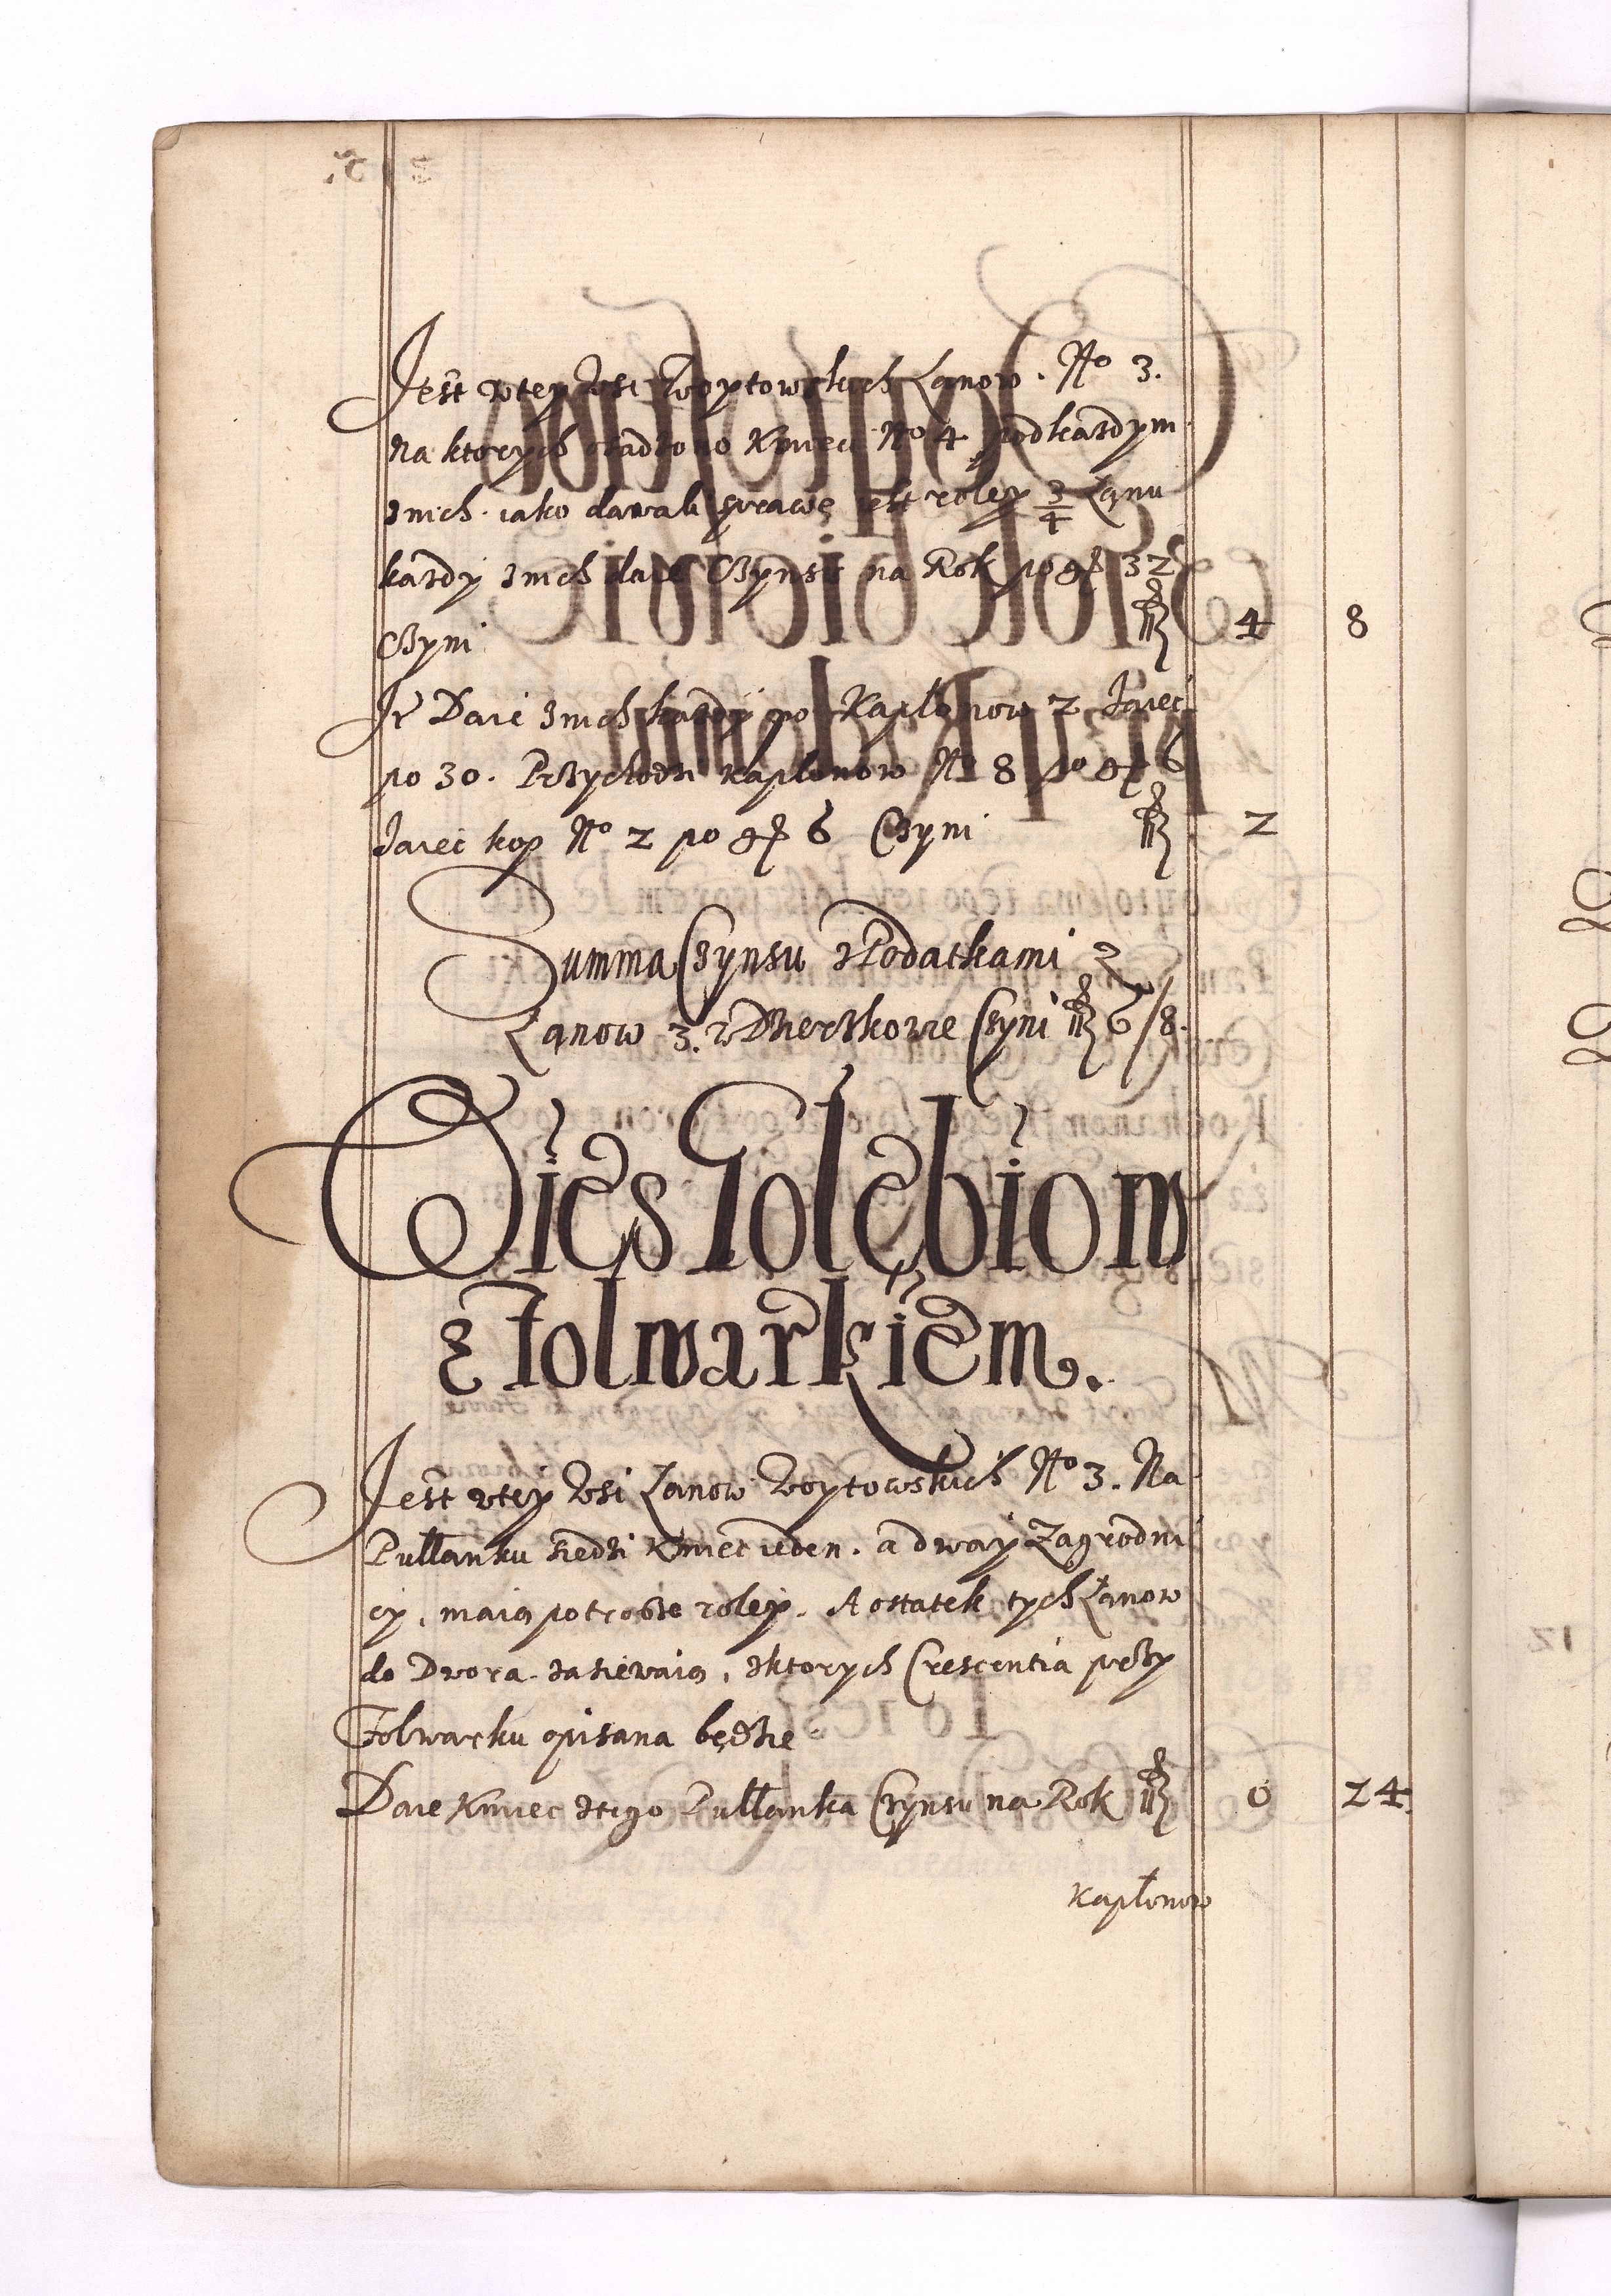 Jest wtey Wsi Woytowskich Łanow. No 3.
Na ktorych osadzono Kmieci No 4 pod kazdym
znich. iako dawali sprawę iest roley 3/4 Łanu
kazdy znich daie Czynsu na Rok po gr 32
Czyni fl 4 8
It Daie znich kazdy po Kapłonow 2 Jaiec
po 30. Przychodzi kapłonow No 8 po gr 6
Jaiec kop No 2 po gr 6 Czyni fl 2
Summa Czynsu zPodatkami z
Łanow 3. w Dzierzkowie Czyni fl 6/8.
Wies Golębiow
z Folwarkiem.
Jest wtey Wsi Łanow Woytowskich No 3. Na
Pułłanku siedzi Kmiec ieden. a dway Zagrodni
cy, maią potrosze roley. A ostatek tych Łanow
do Dwora zasiewaią, zktorych Crescentia przy
Folwarku opisana będzie
Daie Kmiec ztego Pułłanka Czynsu na Rok fl 0 24.
Kapłonow